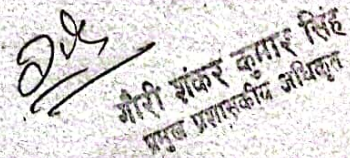 गौरी शंकर कुमार सिंह
प्रमुख प्रशासकीय अधिकृत